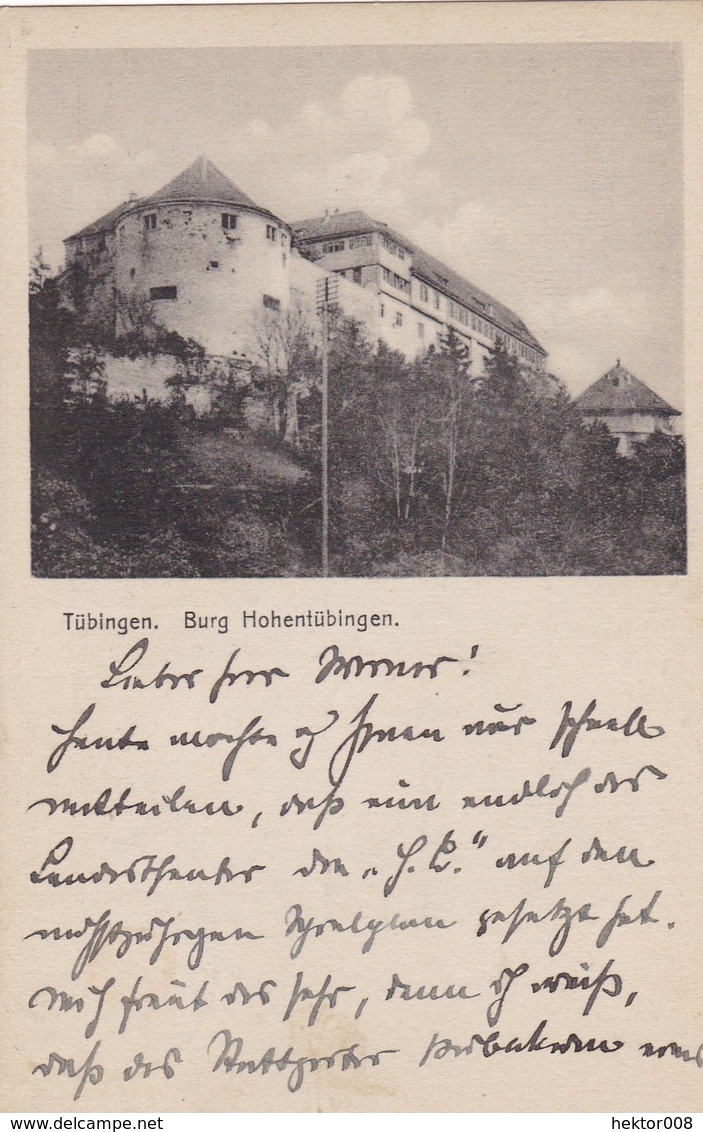 Tübingen. Burg Hohentübingen.
Lieber Herr Werner!
Heute möchte ich Ihnen nur schnell
mitteilen, daß nun endlich das
Landestheater den „H. L." auf den
nächstjährigen Spielplan gesetzt hat.
Mich freut das sehr, denn ich weiß,
daß das Stuttgarter Publikum
hektor008